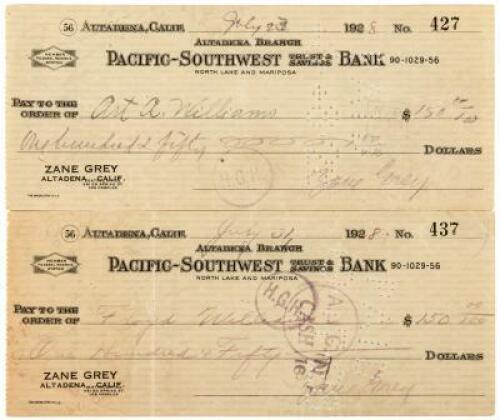 56 ALTADENA, CALIF. July 23 1928 No. 427
ALTADENA BRANCH
MEMBER FEDERAL RESERVE SYSTEM
PACIFIC-SOUTHWEST TRUST & SAVINGS BANK 90-1029-56
NORTH LAKE AND MARIPOSA
PAY TO THE ORDER OF Art A. Williams $ 150 00/100
One hundred & fifty 00/00 DOLLARS
ZANE GREY Zane Grey
ALTADENA, CALIF.
56 ALTADENA, CALIF. July 31 1928. No. 437
ALTADENA BRANCH
MEMBER FEDERAL RESERVE SYSTEM
PACIFIC-SOUTHWEST TRUST & SAVINGS BANK 90-1029-56
NORTH LAKE AND MARIPOSA
PAY TO THE ORDER OF Floyd Williams $ 150 00/100
Hundred & Fifty DOLLARS
ZANE GREY Zane Grey
ALTADENA, CALIF.